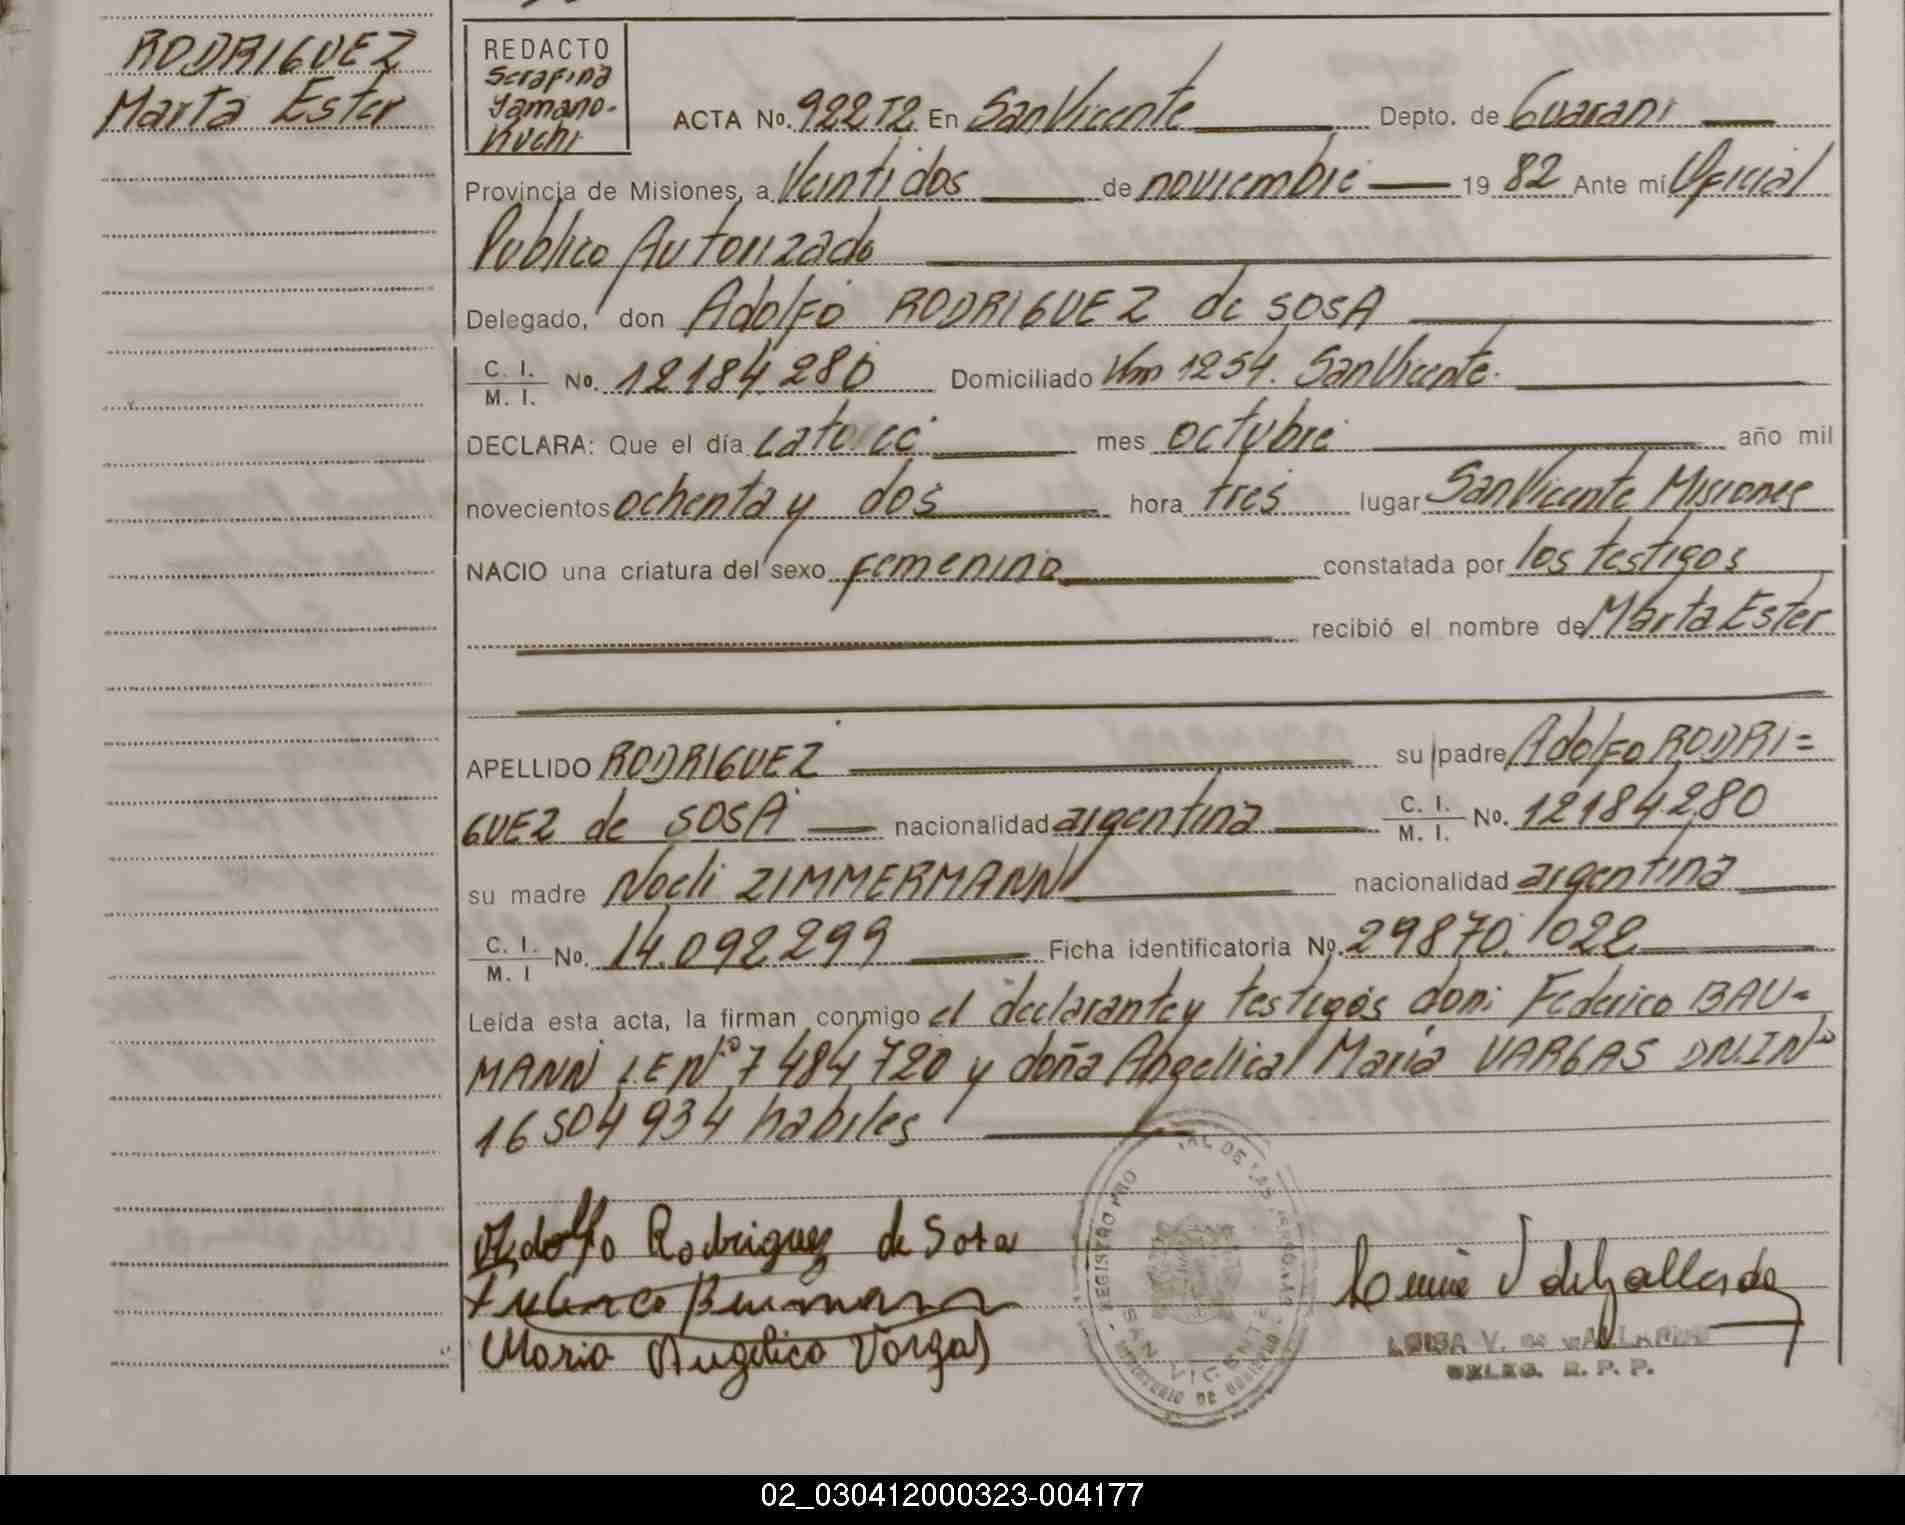 RODRIGUEZ
Marta Ester
REDACTO
Serafina
Yamano-
Kuchi
ACTA No. 922T2 En San Vicente Depto. de Guarani
Provincia de Misiones, a Veintidos de noviembre 19 82 Ante mí Oficial
Publico Autorizado
Delegado, don Adolfo RODRIGUEZ de SOSA
C. I. / M. I. No. 12184.280 Domiciliado Km 1254. San Vicente.
DECLARA: Que el día catorce mes octubre año mil
novecientos ochenta y dos hora tres lugar San Vicente Misiones
NACIO una criatura del sexo femenino constatada por los testigos
recibió el nombre de Marta Ester
APELLIDO RODRIGUEZ su padre Adolfo RODRI=
GUEZ de SOSA nacionalidad argentina C. I. / M. I. No. 12184.280
su madre Noeli ZIMMERMANN nacionalidad argentina
C. I. / M. I No. 14.092.299 Ficha identificatoria No. 29870.022
Leída esta acta, la firman conmigo el declarante y testigos don: Federico BAU=
MANN L.E Nº 7 484 720 y doña Angelica Maria VARGAS DN.I Nº
16504934 habiles
Adolfo Rodriguez de Sosa
Federico Baumann
Maria Angelica Vargas
REGISTRO PRO AL DE LAS PERSONAS
SAN VICENTE
LUISA V. de GALLARDO
DELEG. R. P. P.
02_030412000323-004177